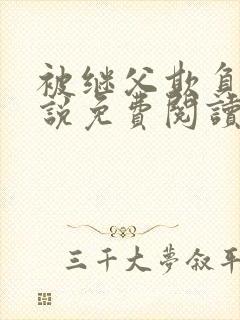 被继父欺负
説免費閱讀
三千大梦叙平